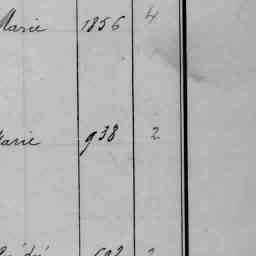 Marie 1856 4
Marie 938 2